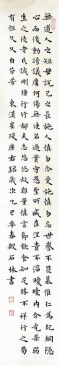 無道人之短無說己之長施人慎勿念受施慎勿忘世譽不足慕惟仁為紀綱隱
心而後動謗議庸何傷無使名過實守愚聖所臧在涅貴不淄曖曖內含光柔弱
生之徒老氏誡剛強行行鄙夫志悠悠故難量慎言節飲食知足勝不祥行之苟
有恆久久自芬芳 東漢崔瑗座右銘 乙巳年春 石林書